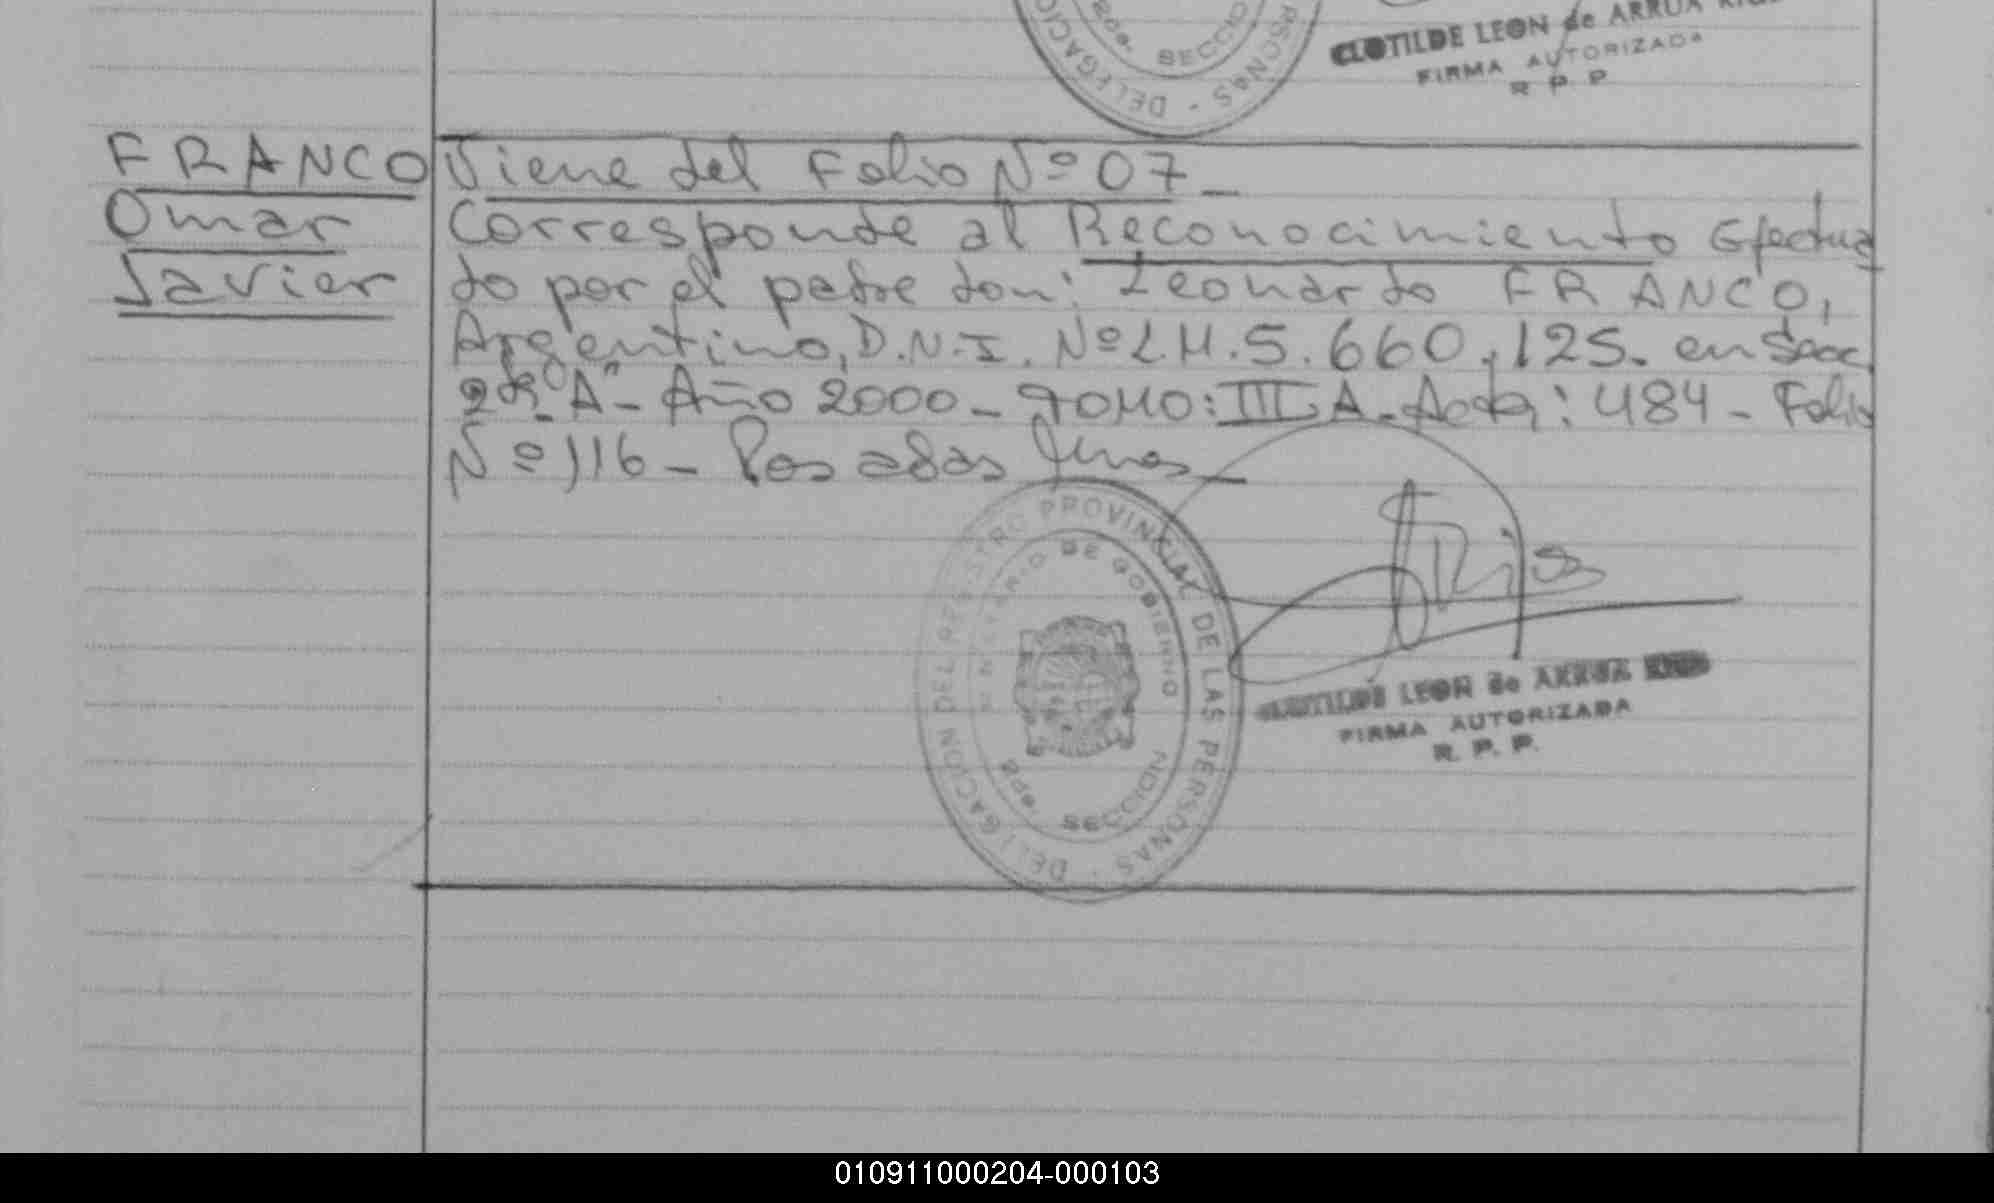 CLOTILDE LEON de ARRUA
FIRMA AUTORIZADA
R P P
SECCIO
PERSONAS - DELEGACIO
FRANCO
Omar
Javier
Viene del Folio Nº 07_
Corresponde al Reconocimiento Efectua
do por el padre don: Leonardo FRANCO,
Argentino, D.N.I. Nº L.M. 5.660.125. en Secc.
2da "A" - Año 2000 - TOMO: III A - Acta: 484 - Folio
Nº 116 - Posadas Mnes
DELEGACION DEL REGISTRO PROVINCIAL DE LAS PERSONAS
MINISTERIO DE GOBIERNO
SECCION
CLOTILDE LEON de ARRUA RIOS
FIRMA AUTORIZADA
R. P. P.
010911000204-000103